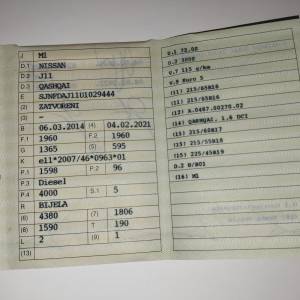 J M1
D.1 NISSAN
D.2 J11
D.3 QASHQAI
E SJNFDAJ11U1029444
(2) ZATVORENI
(3) -
B 06.03.2014 (4) 04.02.2021
F.1 1960 F.2 1960
G 1365 (5) 595
K e11*2007/46*0963*01
P.1 1598 P.2 96
P.3 Diesel
P.4 4000 S.1 5
R BIJELA
(6) 4380 (7) 1806
(8) 1590 T 190
L 2 (9) 1
(13)
U.1 72.00
U.2 2000
V.7 115 g/km
V.9 Euro 5
(11) 215/65R16
(11) 215/65R16
(12) A.0487.00270.02
(14) QASHQAI, 1.6 DCI
(15) 215/60R17
(15) 215/55R18
(15) 225/45R19
O.2 B/B01
(16) M1